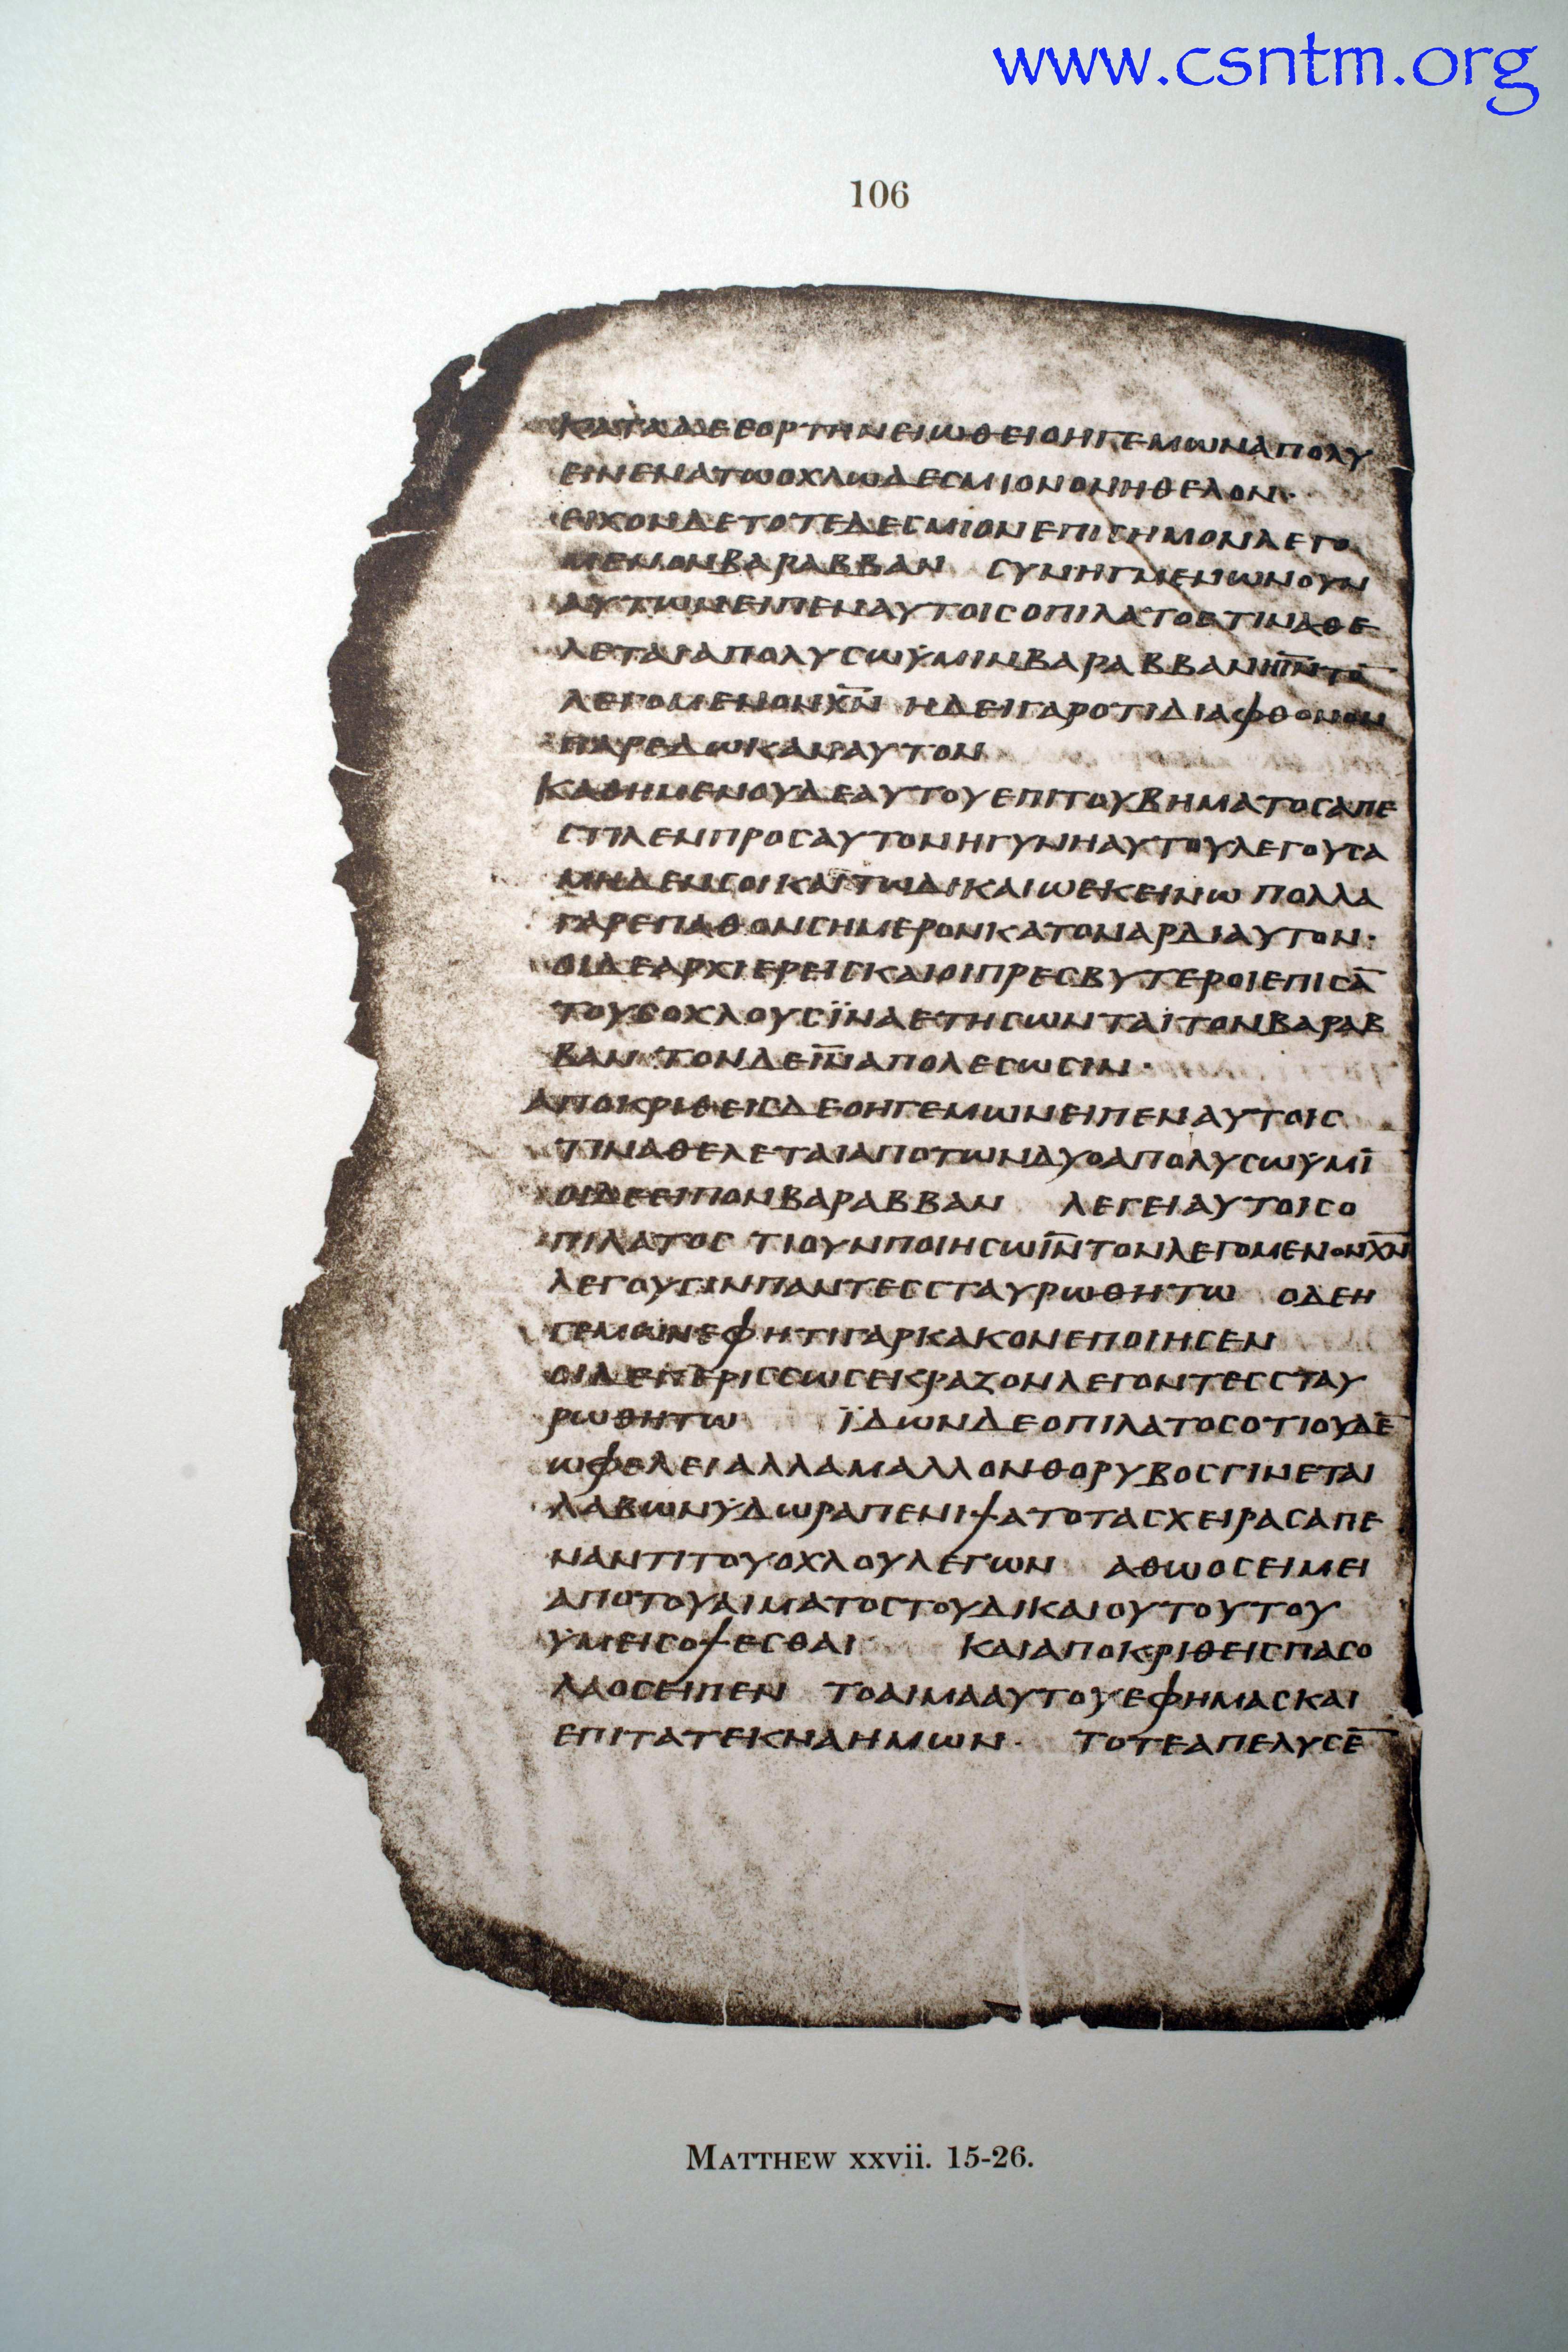 www.csntm.org
106
ΚΑΤΑΔΕΕΟΡΤΗΝΕΙΩΘΕΙΟΗΓΕΜΩΝΑΠΟΛΥ
ΕΙΝΕΝΑΤΩΟΧΛΩΔΕCΜΙΟΝΟΝΗΘΕΛΟΝ·
ΕΙΧΟΝΔΕΤΟΤΕΔΕCΜΙΟΝΕΠΙCΗΜΟΝΛΕΓΟ
ΜΕΝΟΝΒΑΡΑΒΒΑΝ CΥΝΗΓΜΕΝΩΝΟΥΝ
ΑΥΤΩΝΕΙΠΕΝΑΥΤΟΙCΟΠΙΛΑΤΟCΤΙΝΑΘΕ
ΛΕΤΑΙΑΠΟΛΥCΩΫΜΙΝΒΑΡΑΒΒΑΝΗΙ̅Ν̅ΤΟ̅
ΛΕΓΟΜΕΝΟΝΧ̅Ν̅ ΗΔΕΙΓΑΡΟΤΙΔΙΑΦΘΟΝΟΝ
ΠΑΡΕΔΩΚΑΝΑΥΤΟΝ
ΚΑΘΗΜΕΝΟΥΔΕΑΥΤΟΥΕΠΙΤΟΥΒΗΜΑΤΟCΑΠΕ
CΤΙΛΕΝΠΡΟCΑΥΤΟΝΗΓΥΝΗΑΥΤΟΥΛΕΓΟΥCΑ
ΜΗΔΕΝCΟΙΚΑΙΤΩΔΙΚΑΙΩΕΚΕΙΝΩ ΠΟΛΛΑ
ΓΑΡΕΠΑΘΟΝCΗΜΕΡΟΝΚΑΤΟΝΑΡΔΙΑΥΤΟΝ·
ΟΙΔΕΑΡΧΙΕΡΕΙCΚΑΙΟΙΠΡΕCΒΥΤΕΡΟΙΕΠΙCΑ̅
ΤΟΥCΟΧΛΟΥCΪΝΑΕΤΗCΩΝΤΑΙΤΟΝΒΑΡΑΒ
ΒΑΝ ΤΟΝΔΕΙ̅Ν̅ΑΠΟΛΕCΩCΙΝ·
ΑΠΟΚΡΙΘΕΙCΔΕΟΗΓΕΜΩΝΕΙΠΕΝΑΥΤΟΙC
ΤΙΝΑΘΕΛΕΤΑΙΑΠΟΤΩΝΔΥΟΑΠΟΛΥCΩΫΜΙ̅
ΟΙΔΕΕΙΠΟΝΒΑΡΑΒΒΑΝ ΛΕΓΕΙΑΥΤΟΙCΟ
ΠΙΛΑΤΟC ΤΙΟΥΝΠΟΙΗCΩΙ̅Ν̅ΤΟΝΛΕΓΟΜΕΝΟΝΧ̅Ν̅
ΛΕΓΟΥCΙΝΠΑΝΤΕCCΤΑΥΡΩΘΗΤΩ ΟΔΕΗ
ΓΕΜΩΝΕΦΗΤΙΓΑΡΚΑΚΟΝΕΠΟΙΗCΕΝ
ΟΙΔΕΠΕΡΙCCΩCΕΚΡΑΖΟΝΛΕΓΟΝΤΕCCΤΑΥ
ΡΩΘΗΤΩ ΪΔΩΝΔΕΟΠΙΛΑΤΟCΟΤΙΟΥΔΕ̅
ΩΦΕΛΕΙΑΛΛΑΜΑΛΛΟΝΘΟΡΥΒΟCΓΙΝΕΤΑΙ
ΛΑΒΩΝΫΔΩΡΑΠΕΝΙΨΑΤΟΤΑCΧΕΙΡΑCΑΠΕ
ΝΑΝΤΙΤΟΥΟΧΛΟΥΛΕΓΩΝ ΑΘΩΟCΕΙΜΕΙ
ΑΠΟΤΟΥΑΙΜΑΤΟCΤΟΥΔΙΚΑΙΟΥΤΟΥΤΟΥ
ΫΜΕΙCΟΨΕCΘΑΙ ΚΑΙΑΠΟΚΡΙΘΕΙCΠΑCΟ
ΛΑΟCΕΙΠΕΝ ΤΟΑΙΜΑΑΥΤΟΥΕΦΗΜΑCΚΑΙ
ΕΠΙΤΑΤΕΚΝΑΗΜΩΝ· ΤΟΤΕΑΠΕΛΥCΕ̅
MATTHEW xxvii. 15-26.